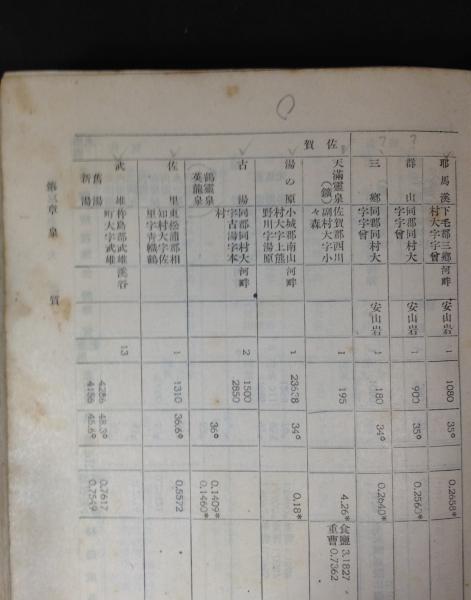 佐賀
耶馬溪 下毛郡三郷村大字曾 河畔 安山岩 1 1080 35° 0.2658*
群山 同郡同村大字字曾 安山岩 1 900 35° 0.2560*
三郷 同郡同村大字曾 安山岩 1 180 34° 0.2640*
天滿靈泉(鑛) 佐賀郡西川副村大字小々森 1 195 4.26* 食鹽 3.1827 重曹 0.7362
湯の原 小城郡南山村大字上熊野川字湯原 河畔 1 23638 34° 0.18*
古湯 同郡同村大字古湯字本村 河畔 2 1500 2850
鶴靈泉 36° 0.1409*
英龍泉 0.1460*
佐里 東松浦郡相知村大字佐里字 1 1310 36.6° 0.5572
武雄 杵島郡武雄町大字武雄 溪谷 13
舊湯 4286 48.3° 0.7617
新湯 4156 45.6° 0.7549
第 章 泉質